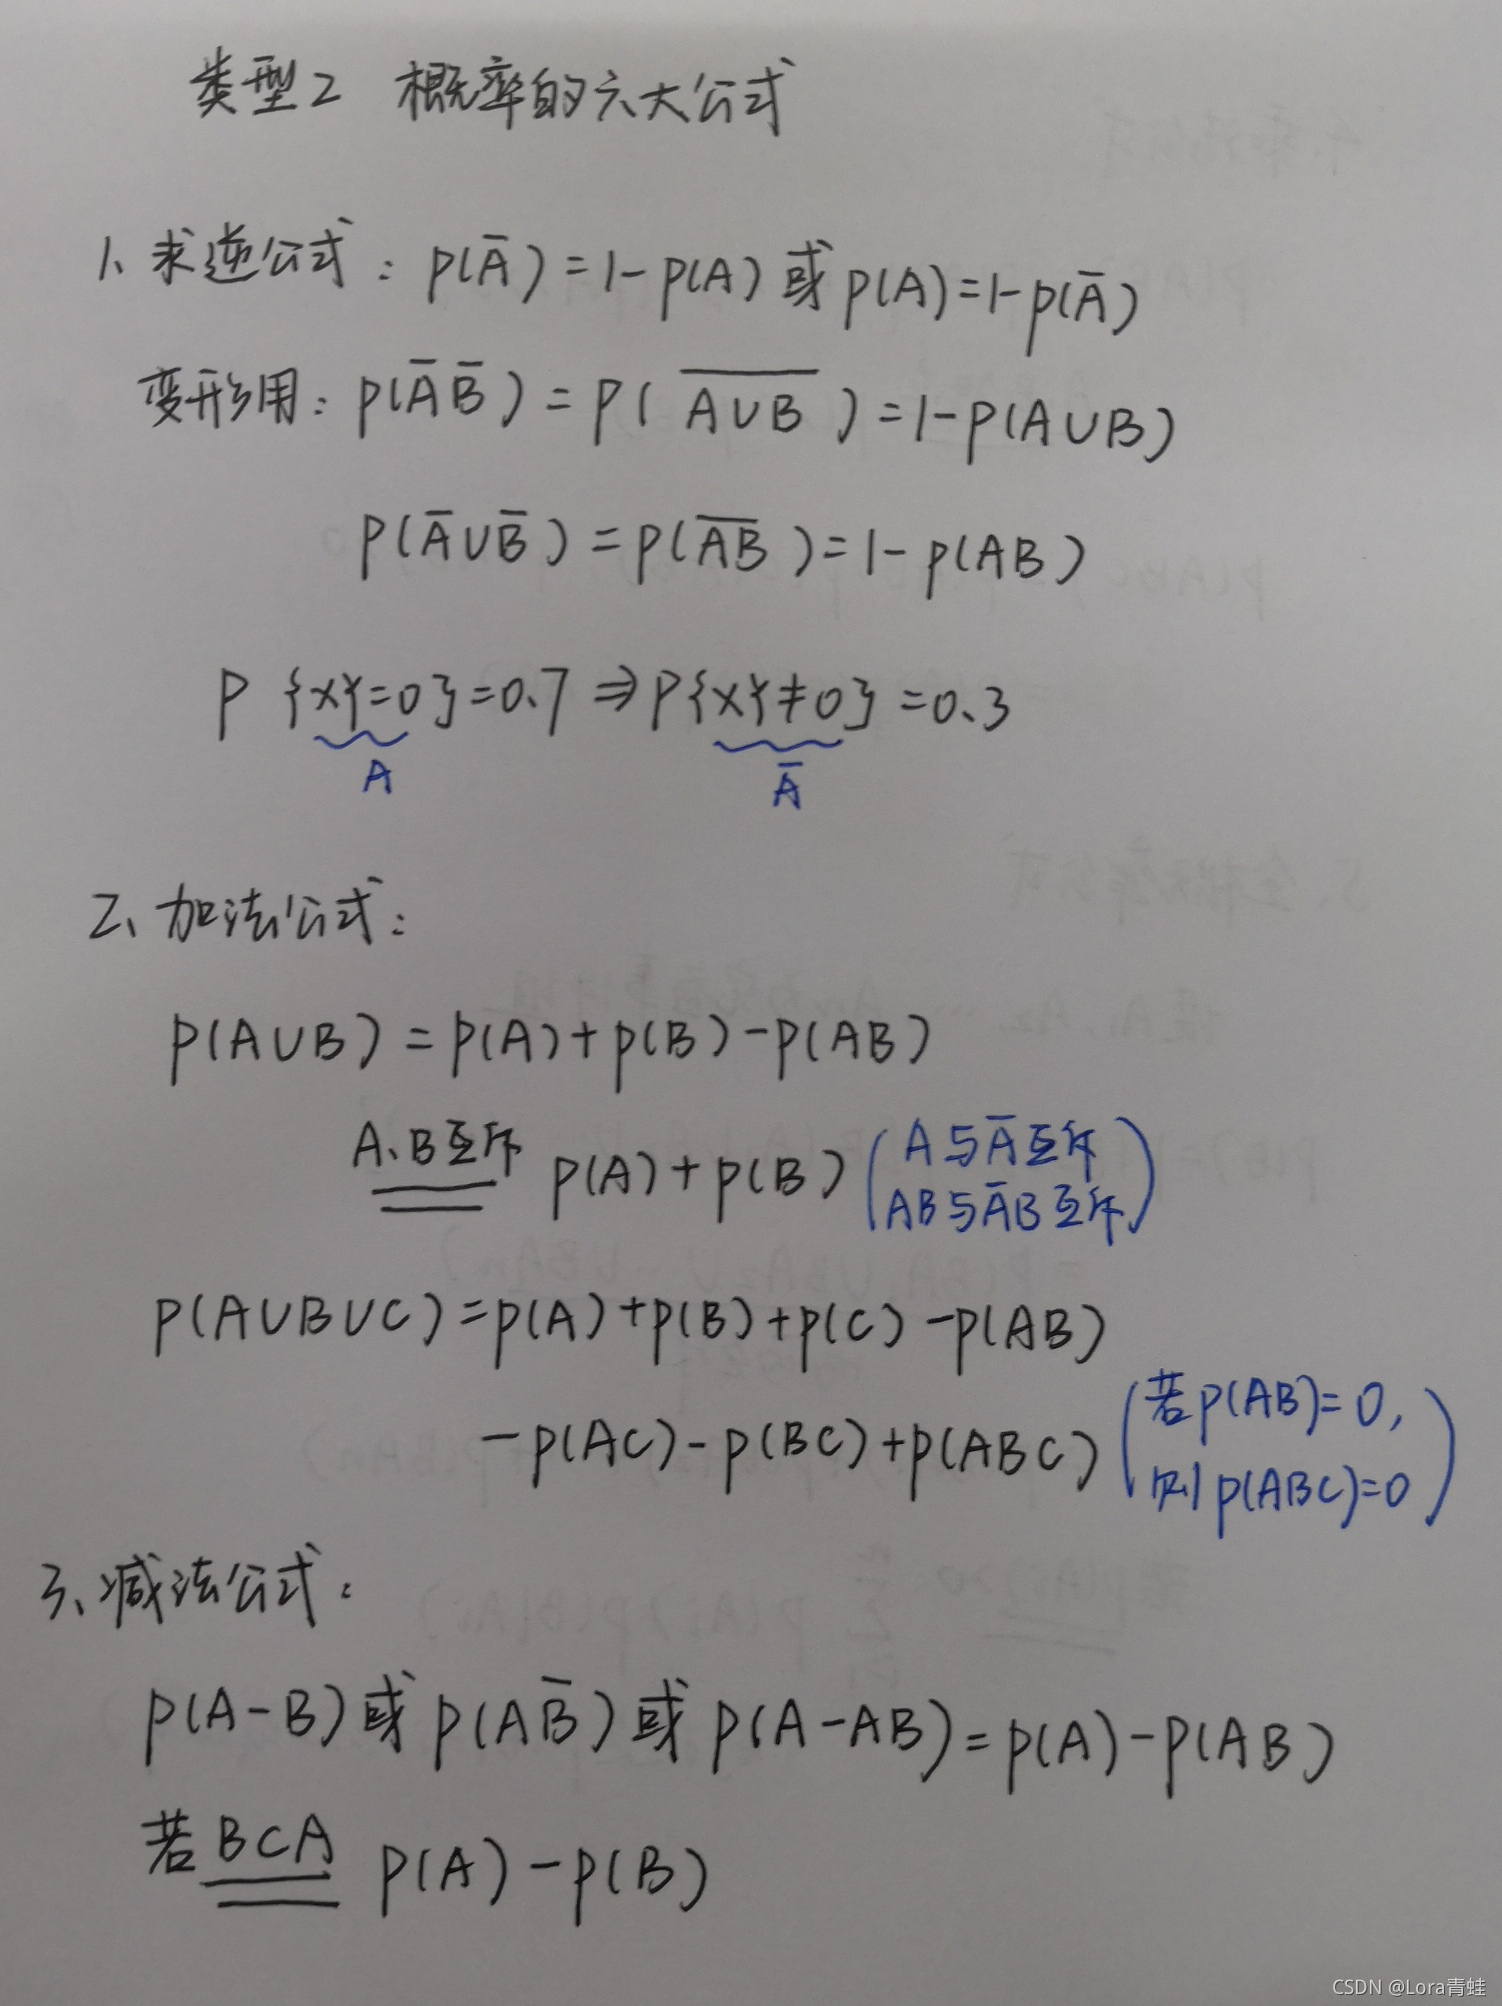 类型2 概率的六大公式
1、求逆公式：P(A̅)=1-P(A) 或 P(A)=1-P(A̅)
变形用：P(A̅B̅)=P(\overline{A∪B})=1-P(A∪B)
P(A̅∪B̅)=P(\overline{AB})=1-P(AB)
P{XY=0}=0.7⇒P{XY≠0}=0.3
A A̅
2、加法公式：
P(A∪B)=P(A)+P(B)-P(AB)
A、B互斥 P(A)+P(B) (A与A̅互斥
AB与A̅B互斥)
P(A∪B∪C)=P(A)+P(B)+P(C)-P(AB)
-P(AC)-P(BC)+P(ABC) (若P(AB)=0,
则P(ABC)=0)
3、减法公式：
P(A-B)或P(AB̅)或P(A-AB)=P(A)-P(AB)
若B⊂A P(A)-P(B)
CSDN @Lora青蛙